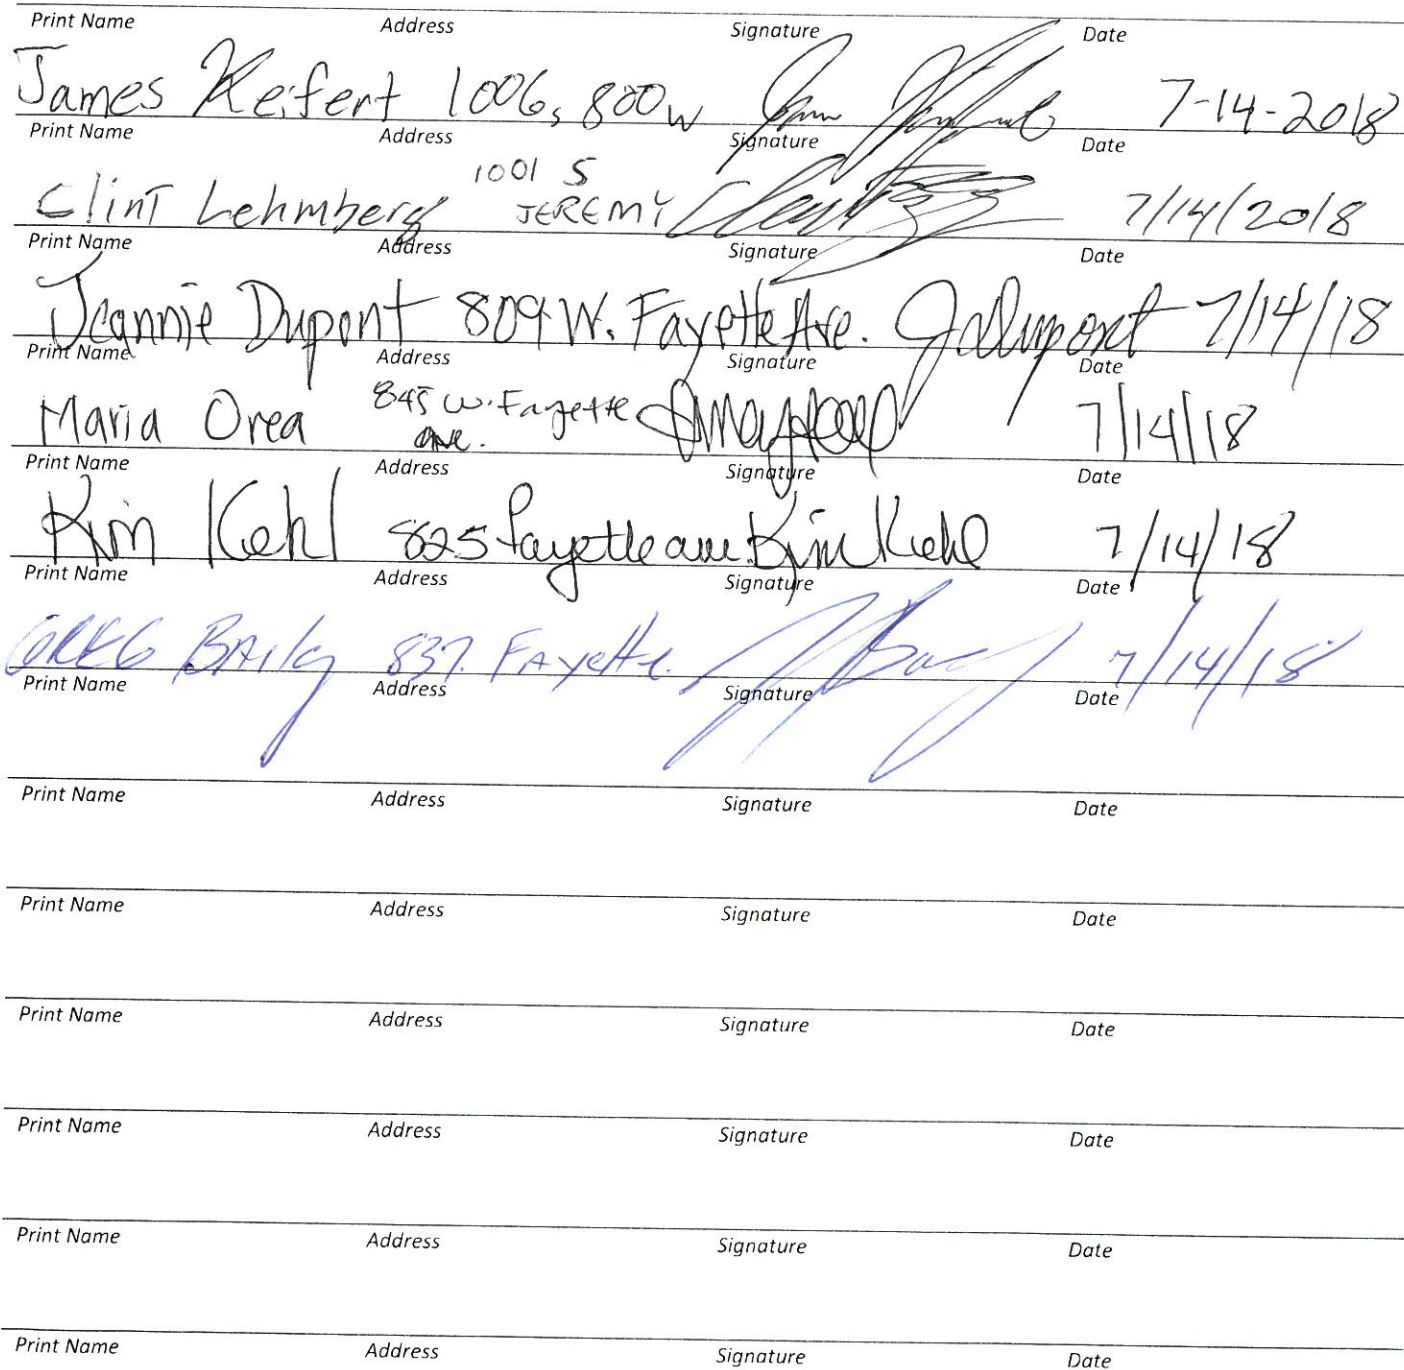 Print Name Address Signature Date
James Keifert 1006 s 800 w 7-14-2018
Print Name Address Signature Date
Clint Lehmberg 1001 S JEREMY 7/14/2018
Print Name Address Signature Date
Jeannie Dupont 809 W. Fayette Ave. JoDupont 7/14/18
Print Name Address Signature Date
Maria Orea 845 W. Fayette ave. 7/14/18
Print Name Address Signature Date
Kim Kehl 825 Fayette ave. Kim Kehl 7/14/18
Print Name Address Signature Date
GREG BAily 837. FAyette. 7/14/18
Print Name Address Signature Date
Print Name Address Signature Date
Print Name Address Signature Date
Print Name Address Signature Date
Print Name Address Signature Date
Print Name Address Signature Date
Print Name Address Signature Date